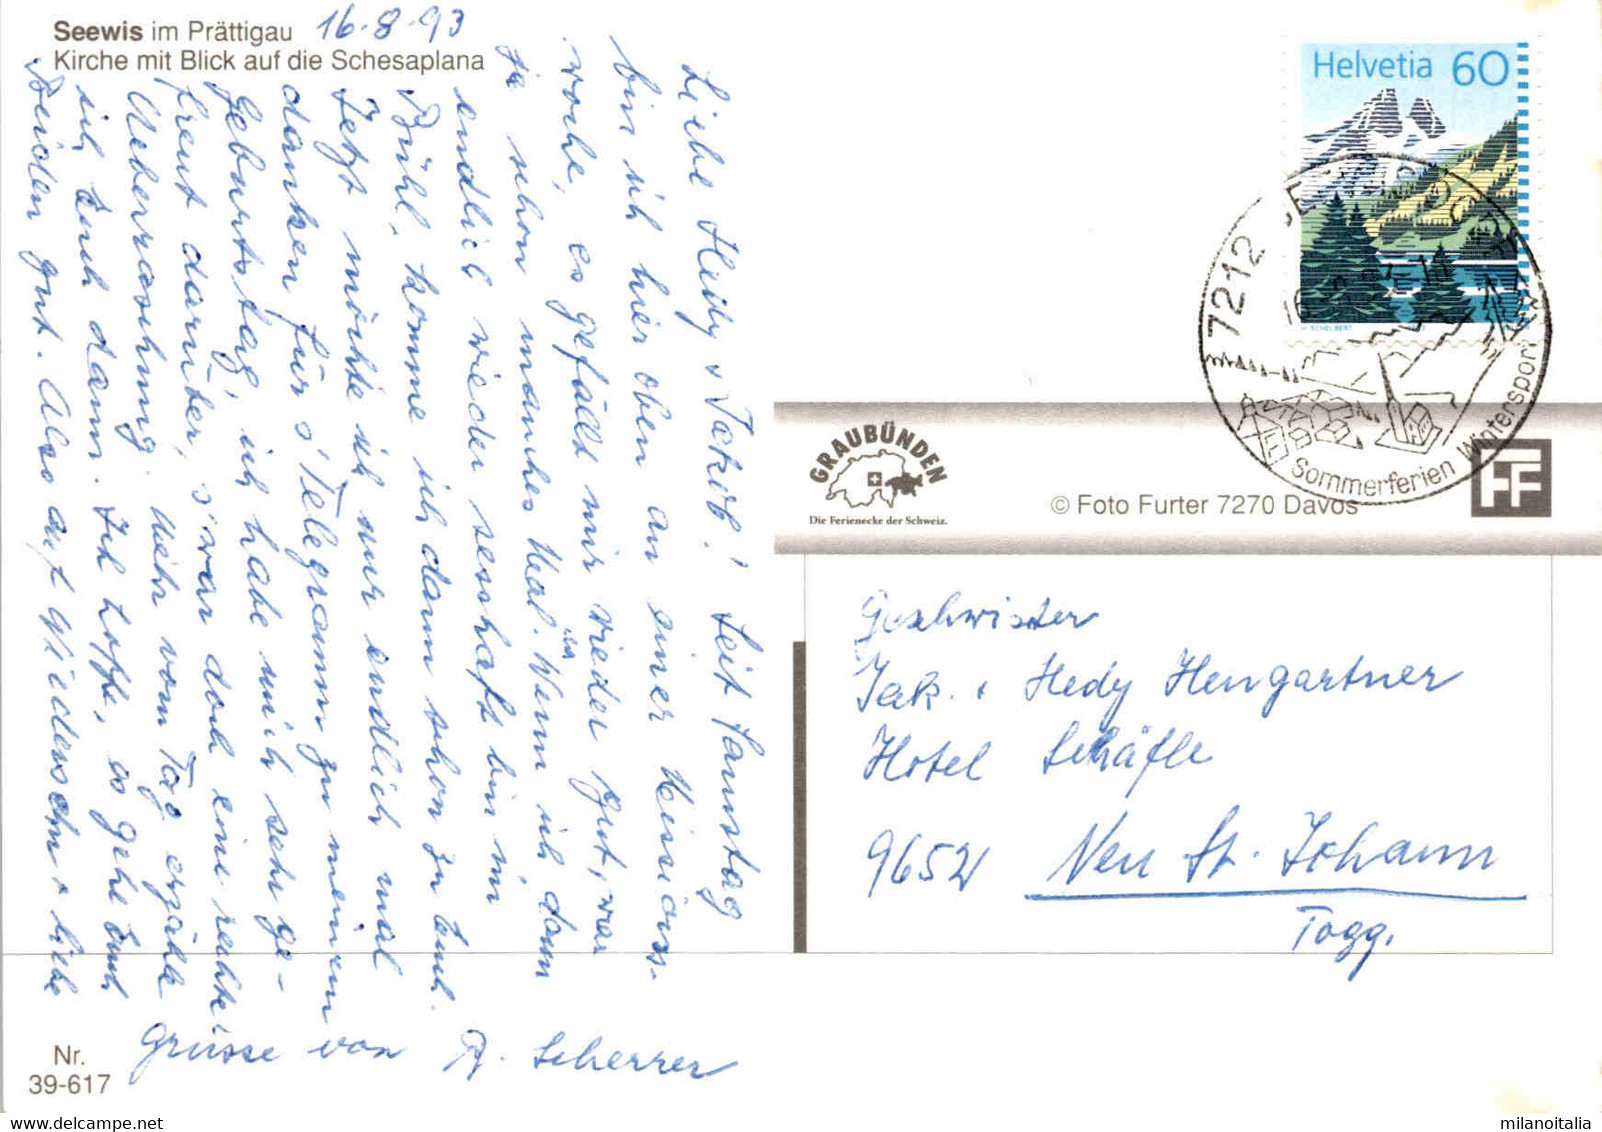 Seewis im Prättigau 16.8.93
Kirche mit Blick auf die Schesaplana
Liebe Hedy + Jakob! Seit Samstag
bin ich hier oben an einer Missions-
woche, es gefällt mir wieder gut, war
ja schon manches Mal. Wenn ich dann
endlich wieder sesshaft bin im
Bühl, komme ich dann schon zu Euch.
Jetzt möchte ich nur endlich mal
danken für s'Telegramm zu meinem
Geburtstag, ich habe mich sehr ge-
freut darüber, s'war doch eine rechte
Ueberraschung. Mehr vom Tag erzähle
ich Euch dann. Ich hoffe, es gehe Euch
Beiden gut. Also auf Wiedersehn + liebe
Grüsse von R. Scherrer
Nr.
39-617
Helvetia 60
H. SCHELBERT
7212 SEEWIS
Sommerferien Wintersport
GRAUBÜNDEN
Die Ferienecke der Schweiz.
© Foto Furter 7270 Davos
FF
Geschwister
Jak. + Hedy Hengartner
Hotel Schäfle
9652 Neu St. Johann
Togg.
milanoitalia